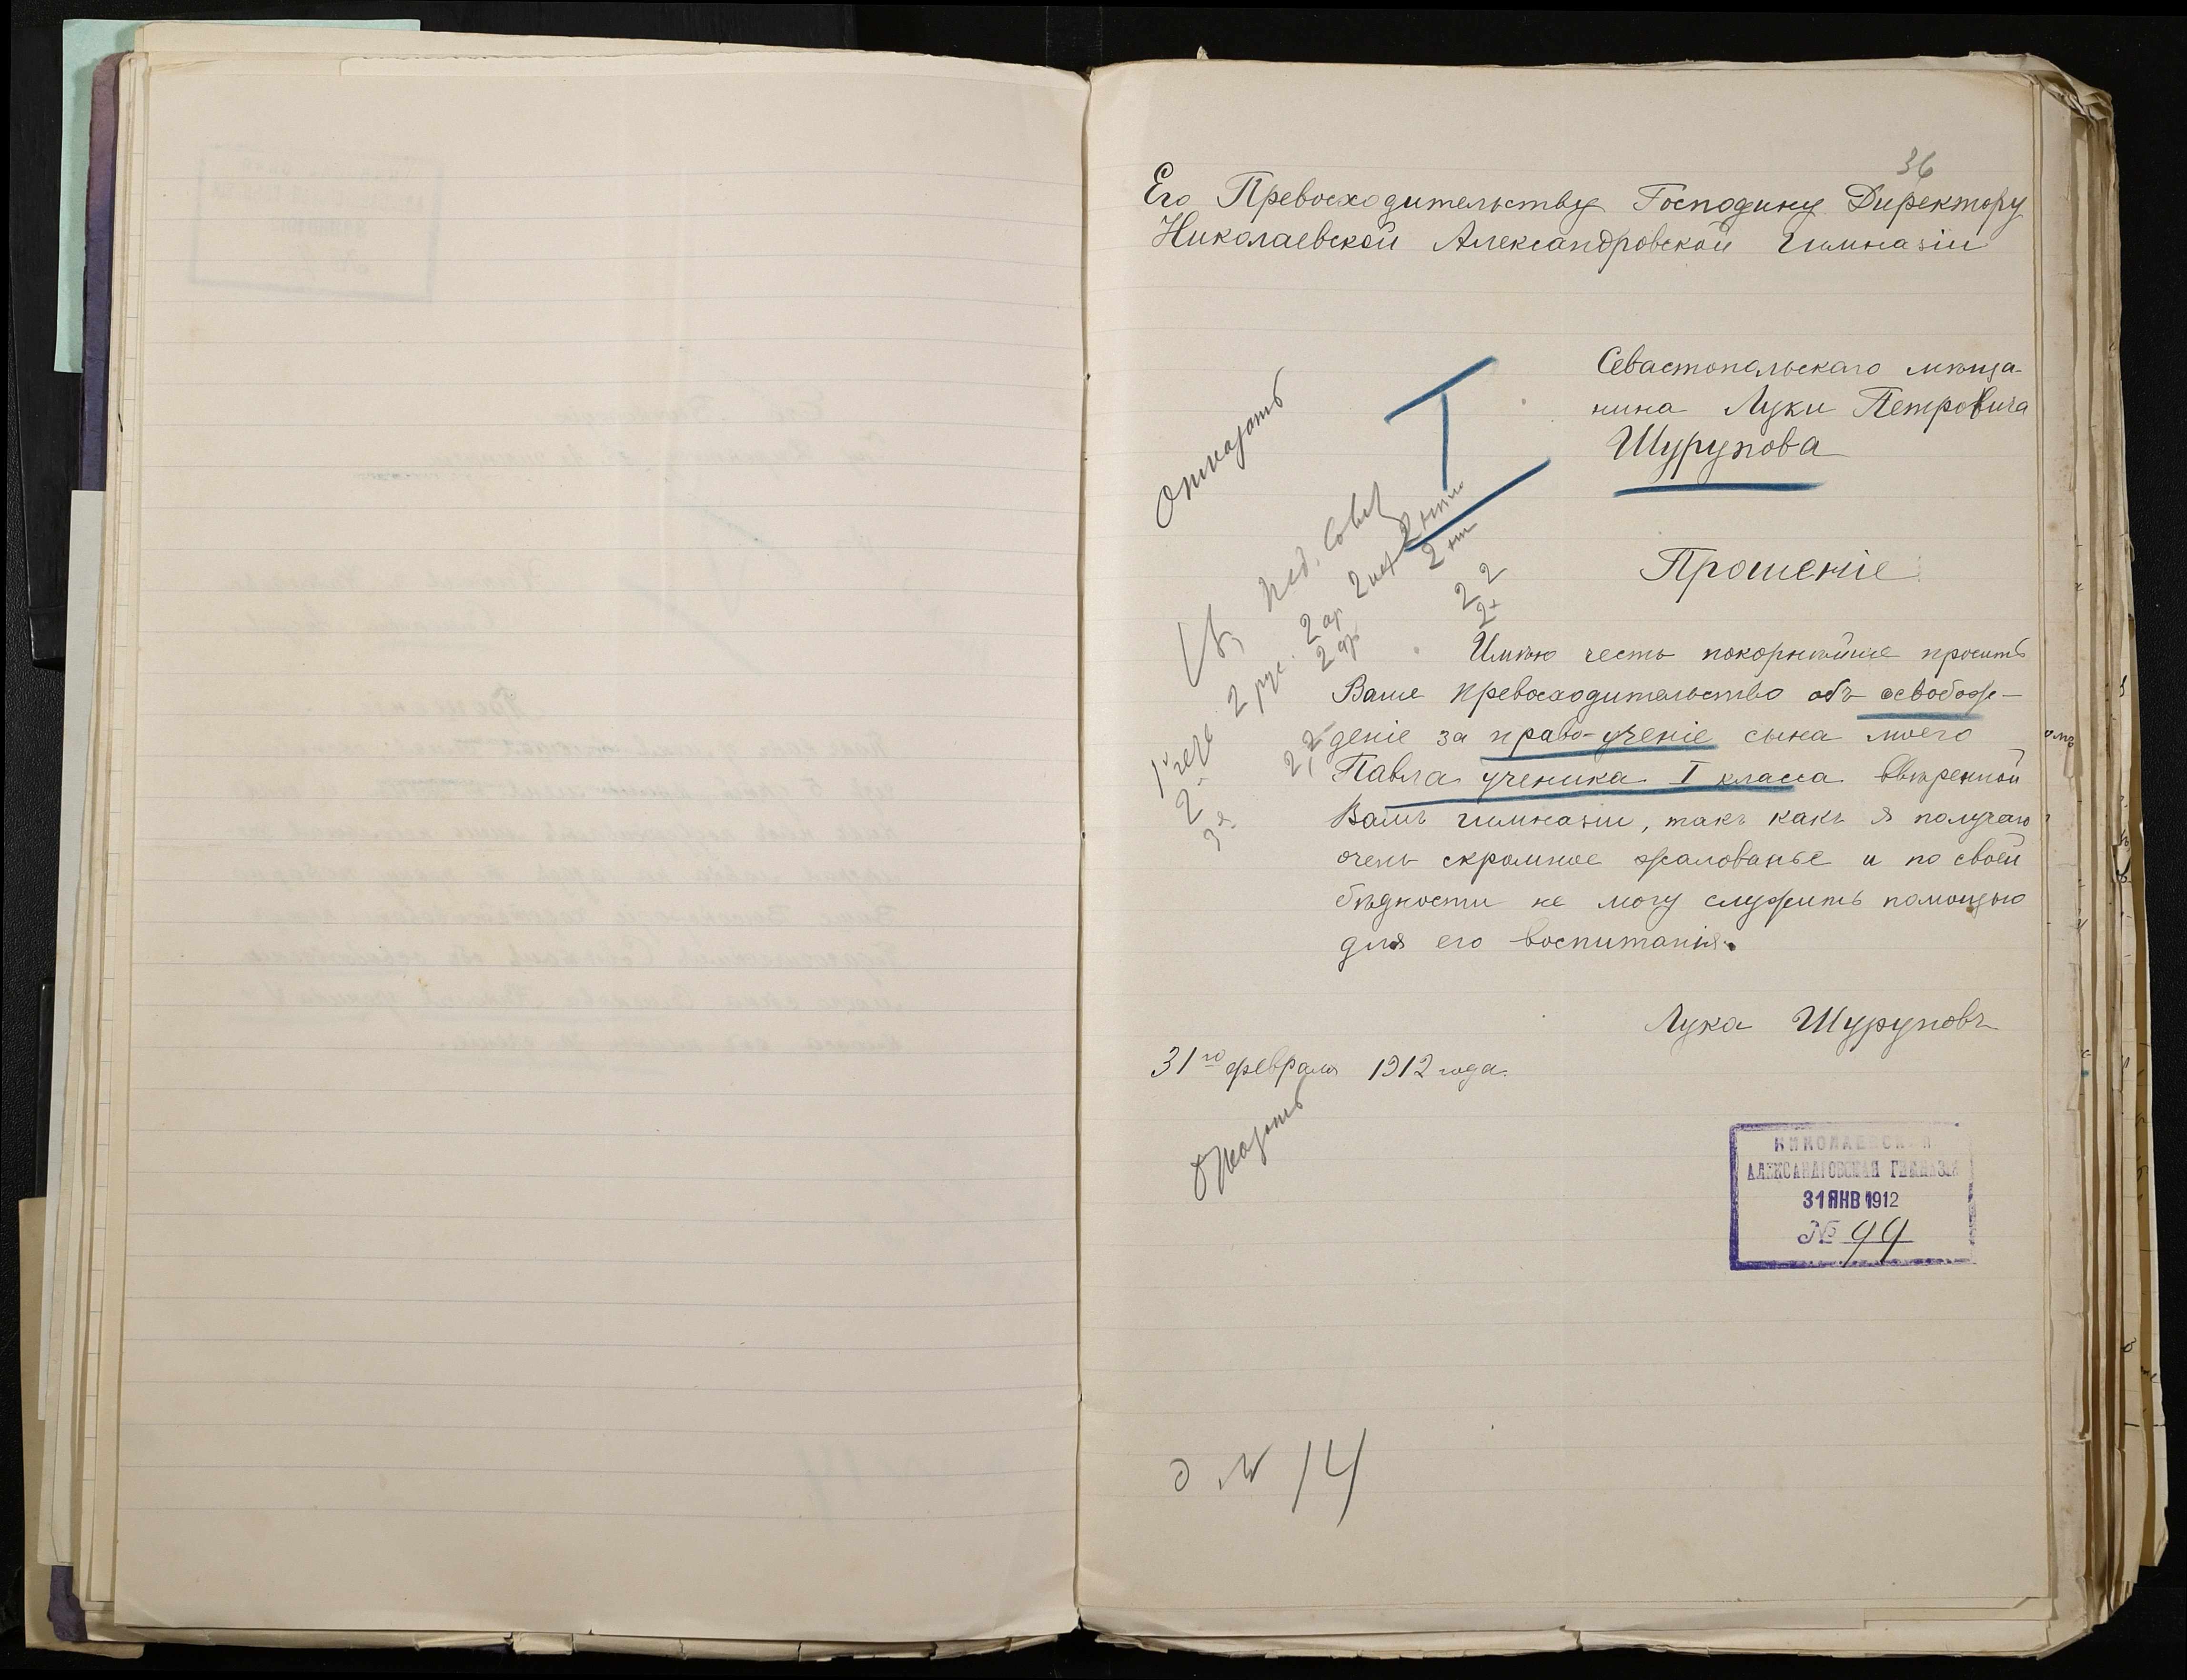 36
Его Превосходительству Господину Директору
Николаевской Александровской гимназіи
Севастопольскаго мѣща-
нина Луки Петровича
Шурупова
Отказать
I
Въ Пед. Совѣт
Прошеніе
2 рус. 2 ар 2 нѣм
2 ар 2 нѣм
2 2
2+
Имѣю честь покорнѣйше просить
Ваше Превосходительство объ освобож-
деніе за право-ученіе сына моего
Павла ученика I класса ввѣренной
Вамъ гимназіи, такъ какъ я получаю
очень скромное жалованье и по своей
бѣдности не могу служить помощью
для его воспитанія.
Лука Шуруповъ
31го февраля 1912 года.
Отказать
НИКОЛАЕВСКАЯ
АЛЕКСАНДРОВСКАЯ ГИМНАЗІЯ
31 ЯНВ 1912
№ 99
д № 14